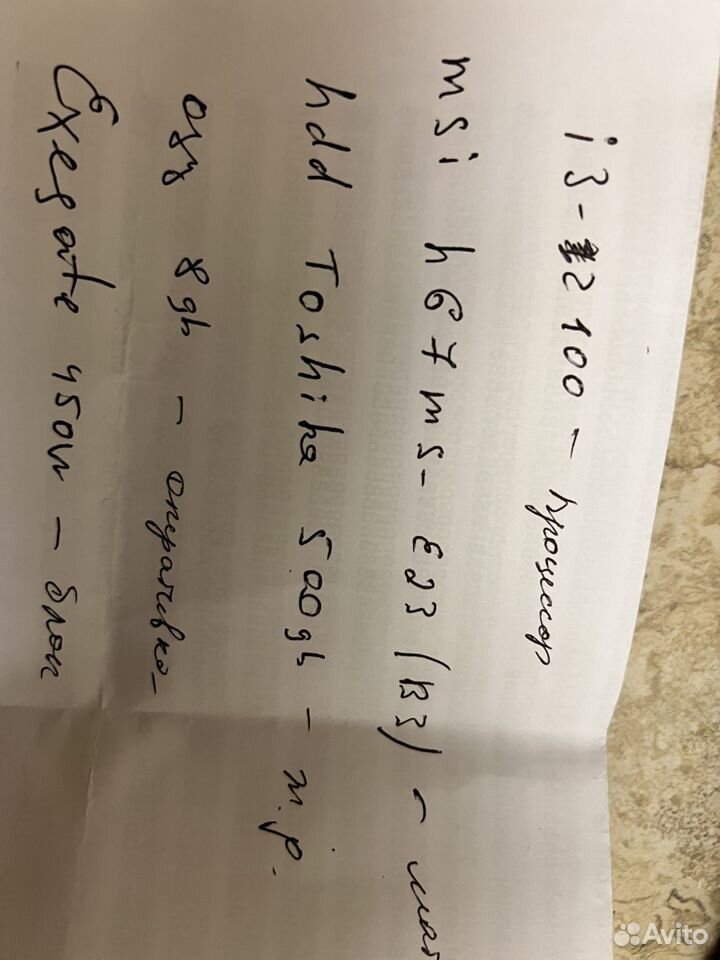 i3-2100 - процессор
msi h67ms-E23 (B3) - мат
hdd Toshiba 500gb - т.р.
озу 8gb - оперативка-
Exegate 450w - блок
Avito